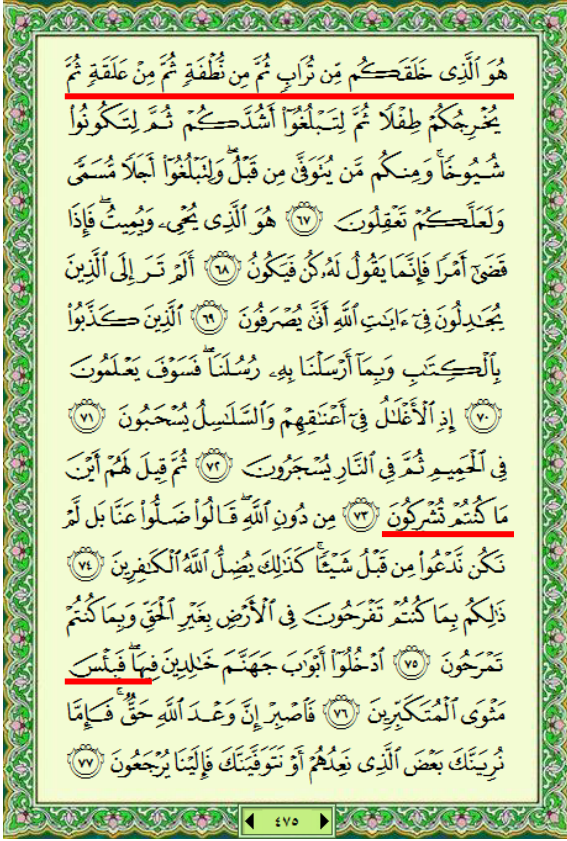 هُوَ ٱلَّذِى خَلَقَكُم مِّن تُرَابٍ ثُمَّ مِن نُّطْفَةٍ ثُمَّ مِنْ عَلَقَةٍ ثُمَّ
يُخْرِجُكُمْ طِفْلًا ثُمَّ لِتَبْلُغُوٓا۟ أَشُدَّكُمْ ثُمَّ لِتَكُونُوا۟
شُيُوخًا ۚ وَمِنكُم مَّن يُتَوَفَّىٰ مِن قَبْلُ ۖ وَلِتَبْلُغُوٓا۟ أَجَلًا مُّسَمًّى
وَلَعَلَّكُمْ تَعْقِلُونَ ٦٧ هُوَ ٱلَّذِى يُحْىِۦ وَيُمِيتُ ۖ فَإِذَا
قَضَىٰٓ أَمْرًا فَإِنَّمَا يَقُولُ لَهُۥ كُن فَيَكُونُ ٦٨ أَلَمْ تَرَ إِلَى ٱلَّذِينَ
يُجَـٰدِلُونَ فِىٓ ءَايَـٰتِ ٱللَّهِ أَنَّىٰ يُصْرَفُونَ ٦٩ ٱلَّذِينَ كَذَّبُوا۟
بِٱلْكِتَـٰبِ وَبِمَآ أَرْسَلْنَا بِهِۦ رُسُلَنَا ۖ فَسَوْفَ يَعْلَمُونَ
٧٠ إِذِ ٱلْأَغْلَـٰلُ فِىٓ أَعْنَـٰقِهِمْ وَٱلسَّلَـٰسِلُ يُسْحَبُونَ ٧١
فِى ٱلْحَمِيمِ ثُمَّ فِى ٱلنَّارِ يُسْجَرُونَ ٧٢ ثُمَّ قِيلَ لَهُمْ أَيْنَ
مَا كُنتُمْ تُشْرِكُونَ ٧٣ مِن دُونِ ٱللَّهِ ۖ قَالُوا۟ ضَلُّوا۟ عَنَّا بَل لَّمْ
نَكُن نَّدْعُوا۟ مِن قَبْلُ شَيْـًٔا ۚ كَذَٰلِكَ يُضِلُّ ٱللَّهُ ٱلْكَـٰفِرِينَ ٧٤
ذَٰلِكُم بِمَا كُنتُمْ تَفْرَحُونَ فِى ٱلْأَرْضِ بِغَيْرِ ٱلْحَقِّ وَبِمَا كُنتُمْ
تَمْرَحُونَ ٧٥ ٱدْخُلُوٓا۟ أَبْوَٰبَ جَهَنَّمَ خَـٰلِدِينَ فِيهَا ۖ فَبِئْسَ
مَثْوَى ٱلْمُتَكَبِّرِينَ ٧٦ فَٱصْبِرْ إِنَّ وَعْدَ ٱللَّهِ حَقٌّ ۚ فَإِمَّا
نُرِيَنَّكَ بَعْضَ ٱلَّذِى نَعِدُهُمْ أَوْ نَتَوَفَّيَنَّكَ فَإِلَيْنَا يُرْجَعُونَ ٧٧
٤٧٥